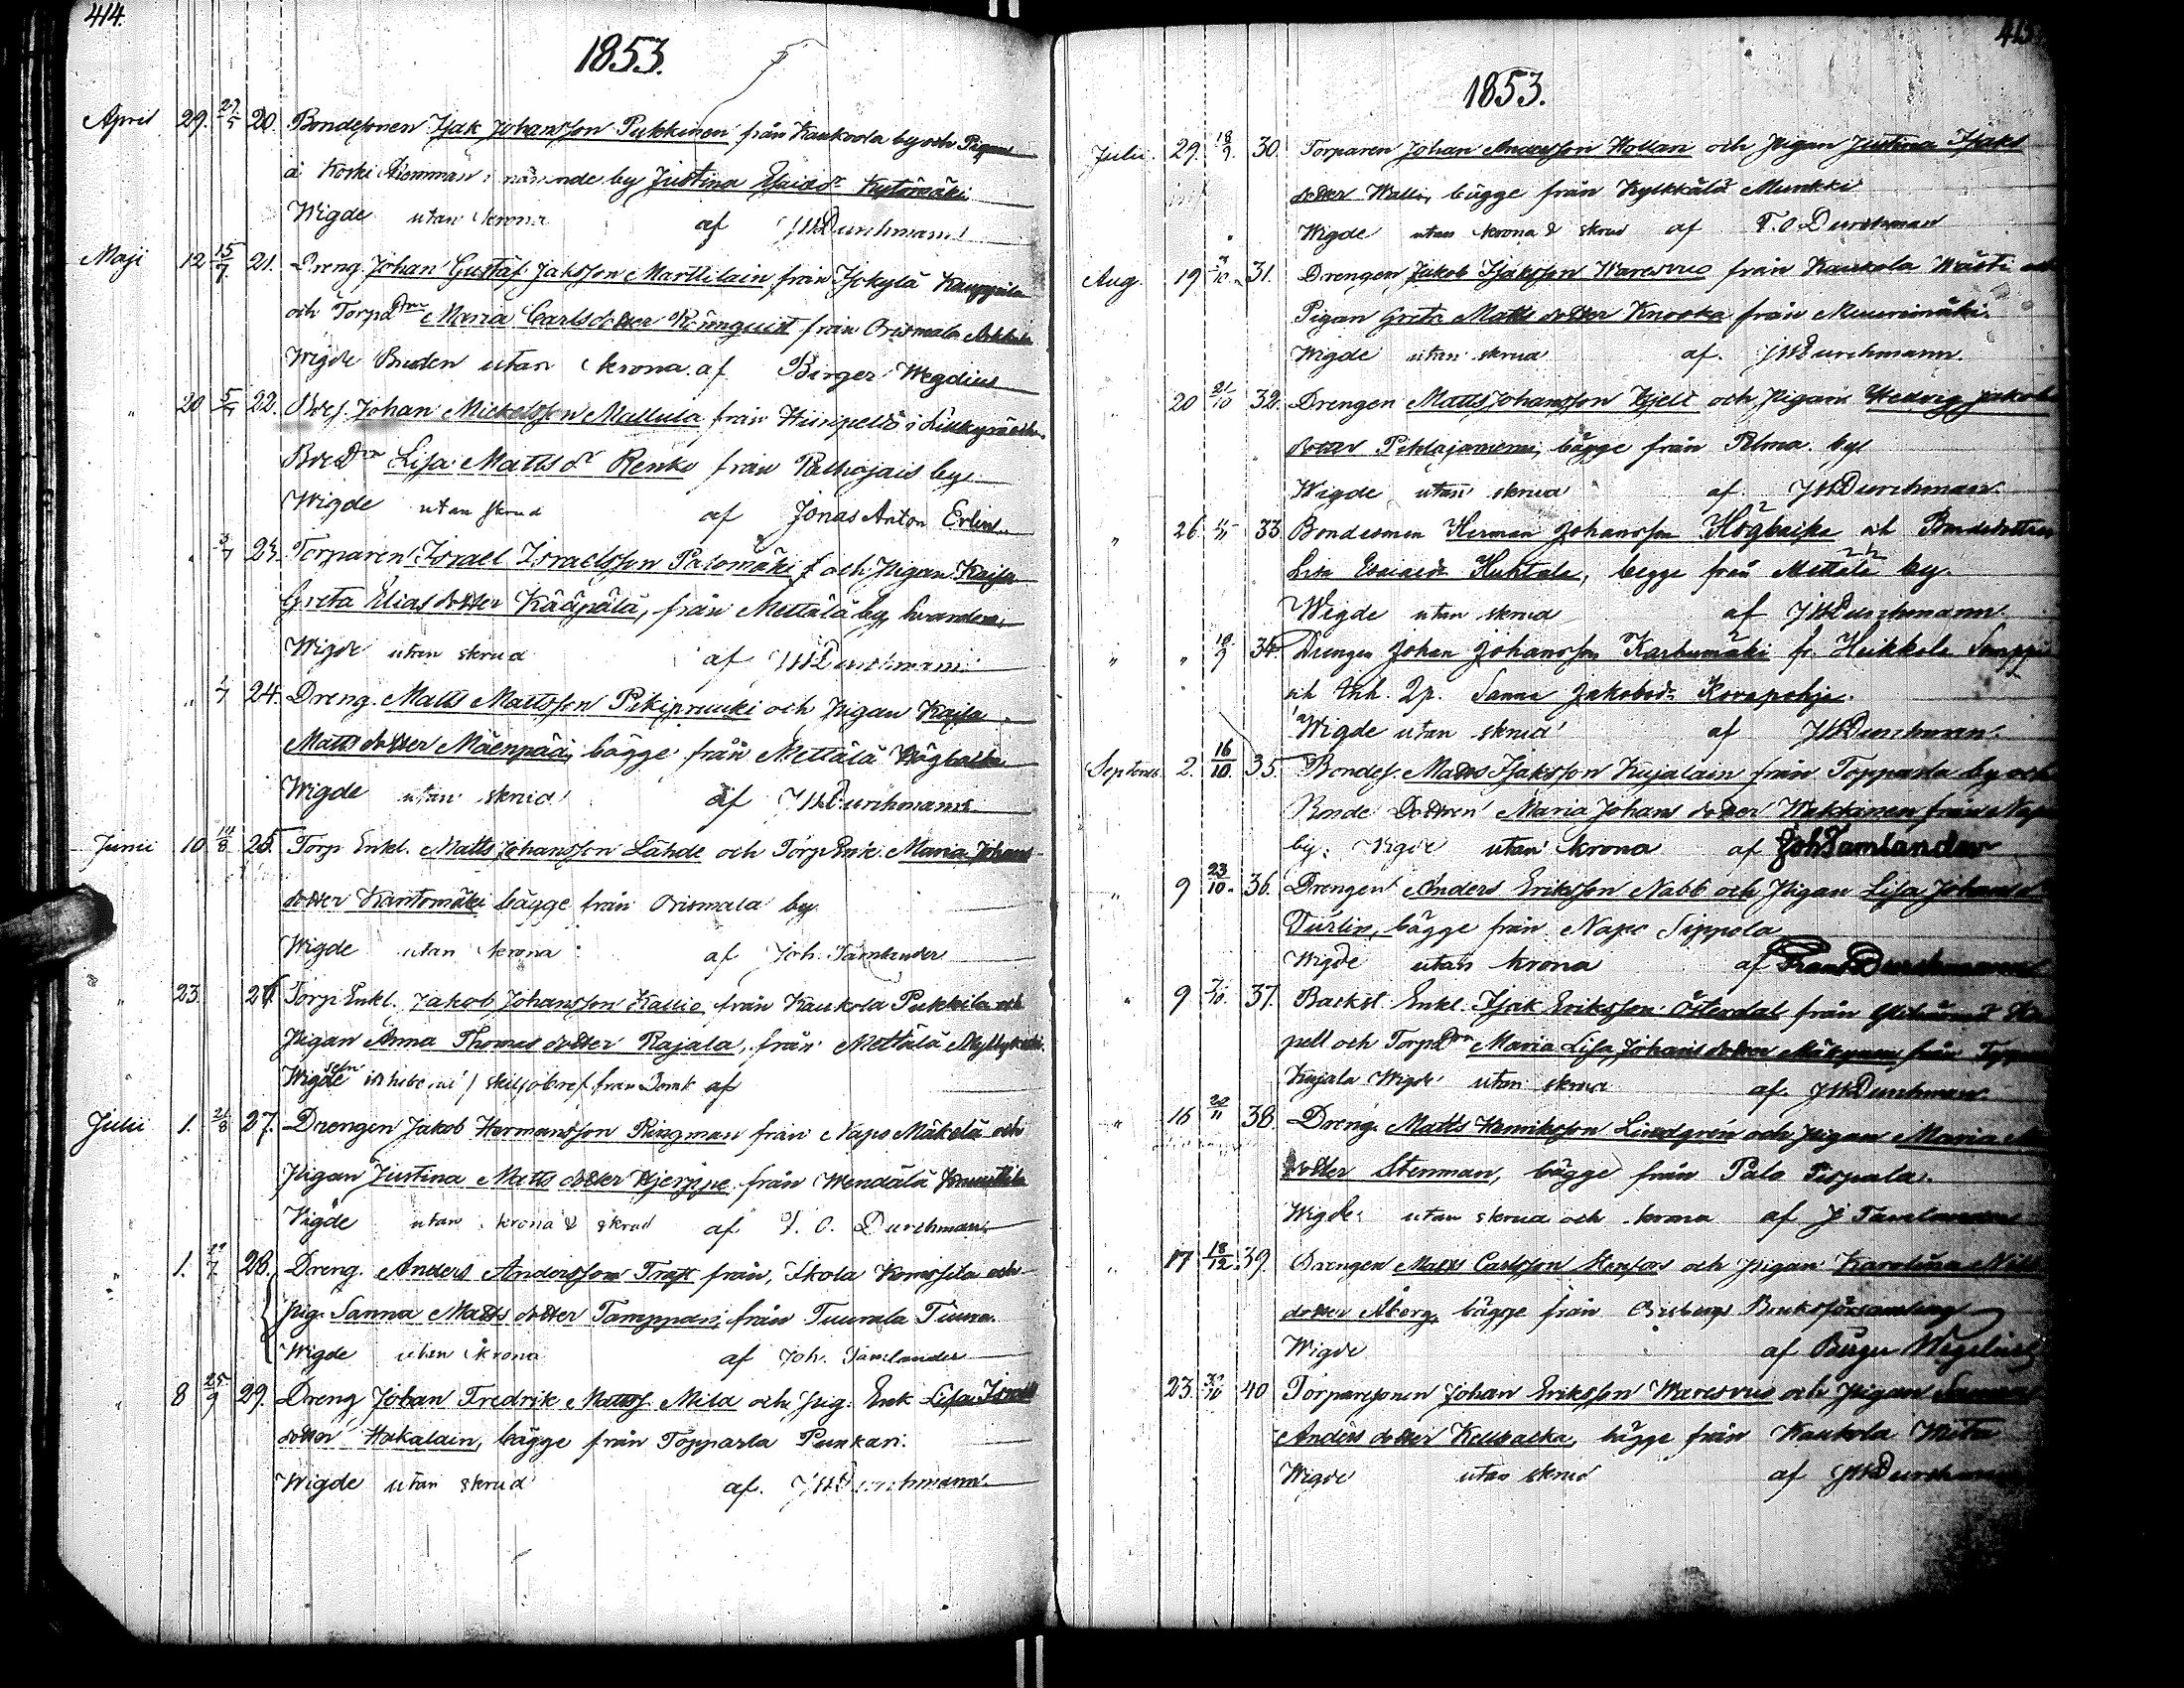 414.
1853.
April 29. 29/5 20. Bondesonen Isak Johansson Pukkinen från Kaukoola by och Pigan
å Koski hemman i nämnde by Justina Esaiasdr Kujtömäki
Wigde utan krona af JWDurchmann
Maji 12 15/7 21. Dreng Johan Gustaf Jakosson Marttilain från Isokylä Kauppila
och Torpd Maria Carlsdotter Rönnquist från Orismala
Wigde Bruden utan krona af Birger Wegelius
" 20 5/7 22. Johan Mickelsson Mallula från i
Lisa Matts dr Renko från by
Wigde utan skrud af Jonas Anton
" 3/7 23. Torparen Israel Israelsson Palomäki och Pigan Kajsa
Greta Eliasdotter Kääpälä, från Mettälä by
Wigde utan skrud af JWDurchmann
" 24. Dreng. Matts Mattsson Pikipruuki och Pigan Kajsa
Mattsdotter Mäenpää, bägge från Mettälä Högbacka
Wigde utan skrud af JWDurchmann
Junii 10 14/8 25. Torp Enkl. Matts Johansson Lähde och Torp Enk. Maria Johans
dotter Kantomäki bägge från Orismala by
Wigde utan krona af Joh. Tamlander
" 23. 26. Torp Enkl. Jakob Johansson Kallio från Kaukola Pukkila och
Pigan Anna Thomasdotter Rajala, från Mettälä
Wigde af
Julii 1. 21/8 27. Drengen Jakob Hermansson Ringman från Napo Mäkelä och
Pigan Justina Mattsdotter Hjerppe från Wendälä
Vigde utan krona & skrud af F. O. Durchman
" 1. 28. Dreng. Anders Andersson Trast från Ikola och
Pig. Sanna Mattsdotter Tamppari, från Tuurala
Wigde utan krona af Joh. Tamlander
" 8 25/9 29. Dreng Johan Fredrik Mattss. och Pig. Enk Lisa
dotter Hakalain, bägge från Topparla Punkari.
Wigde utan skrud af. JWDurchmann.
415.
1853.
Julii. 29. 18/9. 30. Torparen Johan Andersson Hollari och Pigan Justina Isaks
dotter Wallin, bägge från Kylkkälä Munkki
Wigde utan krona & skrud af F. O Durchman
Aug. 19 31. Drengen Jakob Isaksson Waresvuo från Kaukola
Pigan Greta Matts dotter Knooka från
Wigde utan skrud af. JWDurchmann.
20 21/10 32. Drengen Matts Johansson Hjelt och Pigan Hedvig Jakobs
dotter Pihlajaniemi, bägge från Palma by
Wigde utan skrud af. JWDurchmann
" 26 33 Bondesonen Herman Johansson Högbacka och Bondedottren
Lisa Esaiasdr Huhtala, begge från Mettälä by.
Wigde utan skrud af JWDurchmann
" " 18/9 34. Drengen Johan Johansson Karhumäki fr. Heikkola
och Inh. Sanna Jakobsdr Korvapohja.
Wigde utan skrud af JWDurchman.
Septemb. 2. 16/10. 35. Bondes. Matts Isaksson Kujalain från Topparla by och
Bonde Dottren Maria Johans dotter Wakkinen från Napo
by. Vigde utan krona af JohTamlander
" 9 23/10. 36. Drengen Anders Eriksson Nabb och Pigan Lisa Johansd
Durlin, bägge från Napo Sippola
Wigde utan krona af Durchmann
" 9 37. Backst. Enkl. Isak Eriksson Österdal från
och Torpd Maria Lisa Johansdotter Mäkynen från
Kujala Wigde utan skrud af. JWDurchman.
" 16 20/11 38. Dreng. Matts Henriksson Lindgrén och Pigan Maria
dotter Stenman, bägge från Palo Pispala.
Wigde utan skrud och krona af J Tamlander
" 17 18/12 39. Drengen Matts Carlsson Stenfors och Pigan Karolina Nils
dotter Åberg, bägge från Orisbergs Bruksförsamling
Wigde af Birger Wegelius
23. 30/10 40 Torparesonen Johan Eriksson Waresvuo och Pigan Sanna
Anders dotter Kellbacka, bägge från Kaukola
Wigde utan skrud af JWDurchman